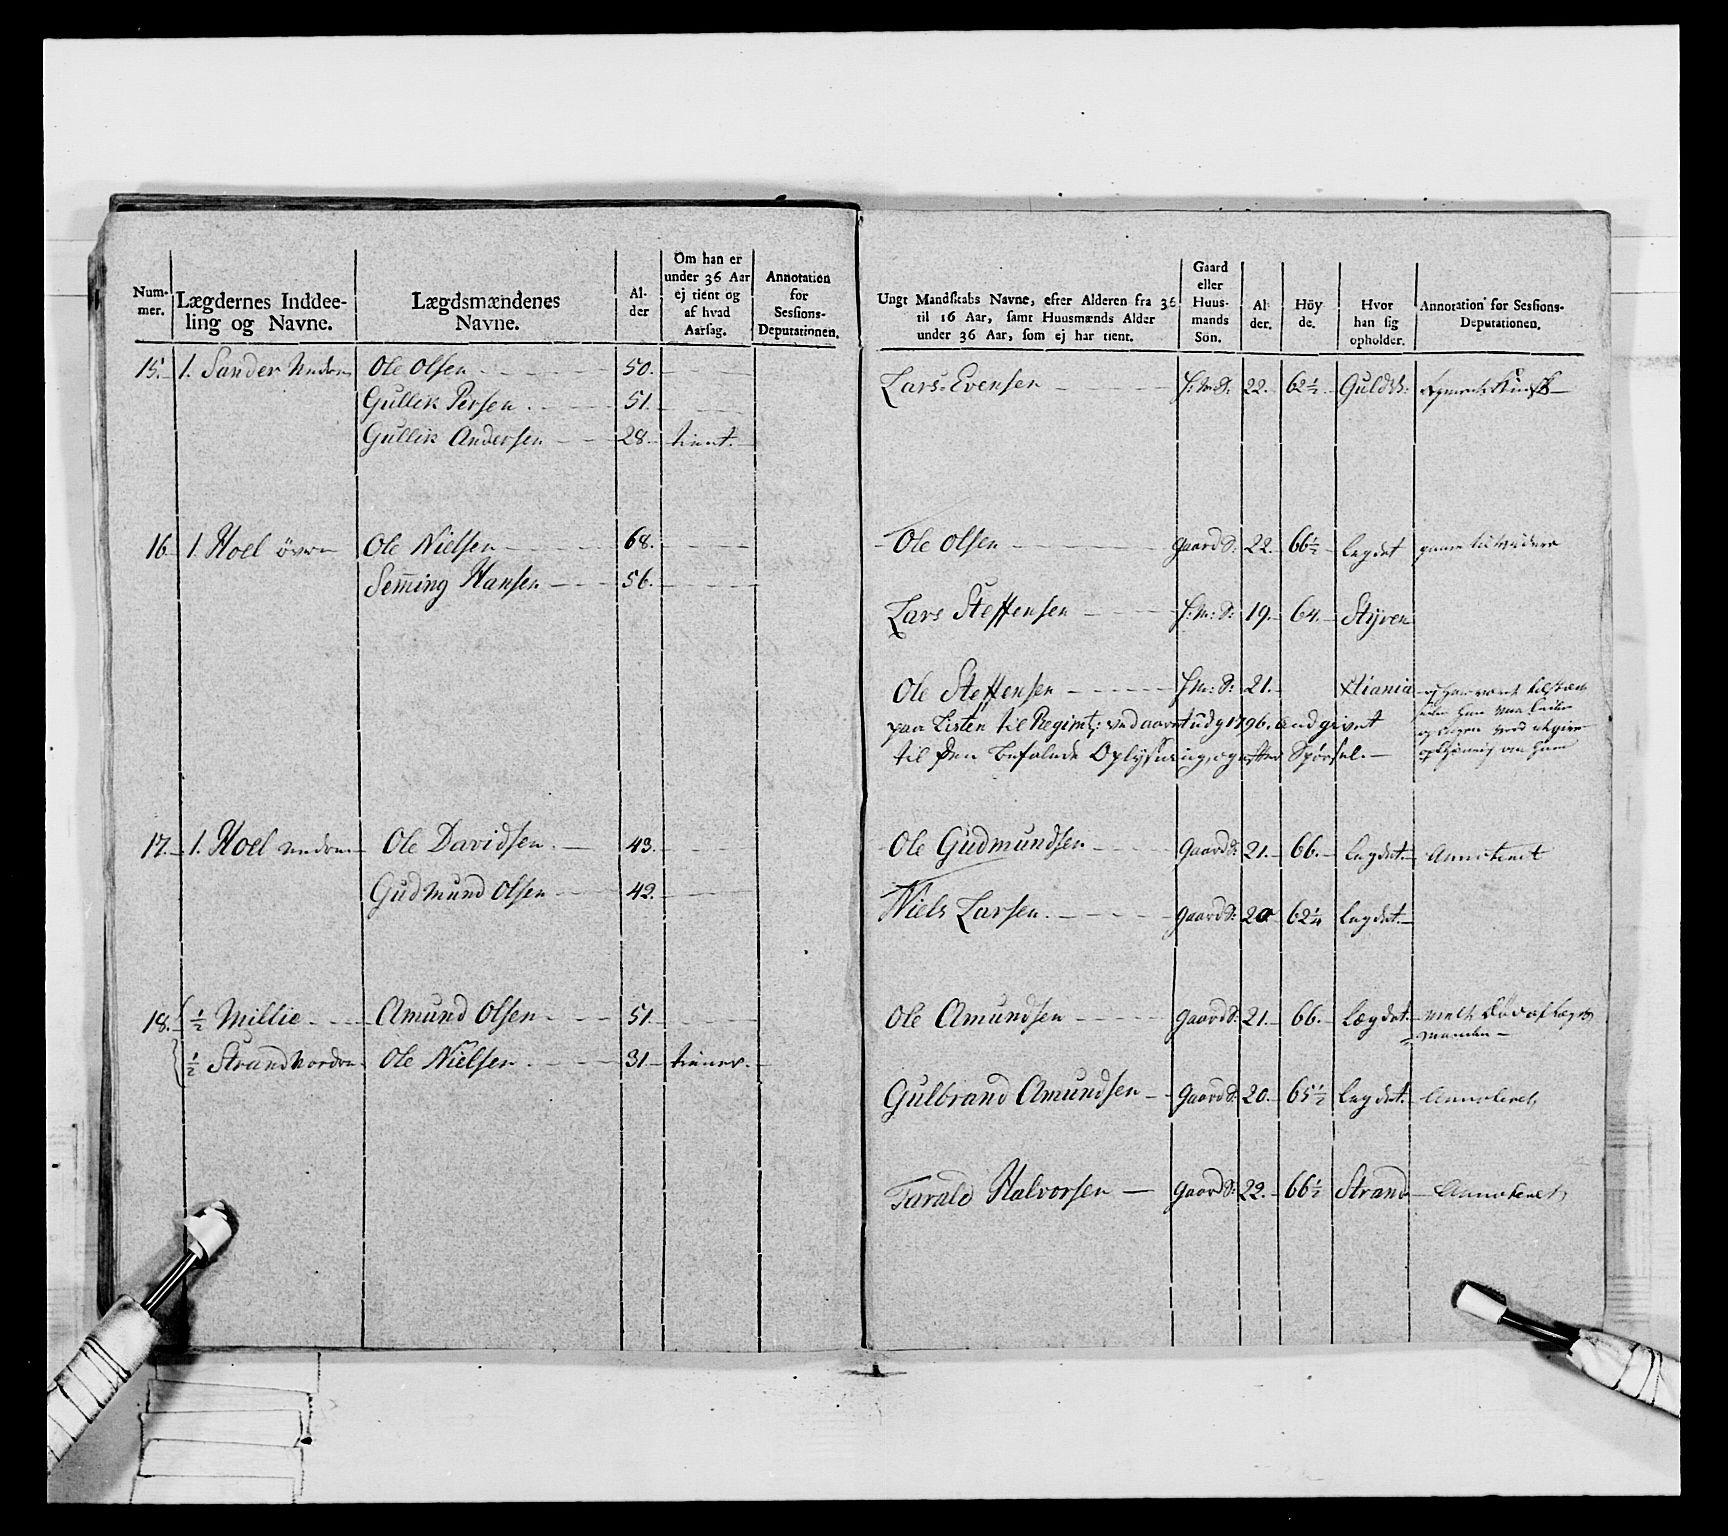 Num-
mer.
Lægdernes Inddee-
ling og Navne.
Lægdsmændenes
Navne.
Al-
der
Om han er
under 36 Aar
ej tient og
af hvad
Aarsag.
Annotation
for
Sessions-
Deputationnen.
15. 1. Sander Nedre Ole Olsen 50.
Gullik Persen 51.
Gullik Andersen 28. tient.
16 1. Hoel övre Ole Nielsen 68.
Seming Hansen 56.
17. 1. Hoel nedre Ole Davidsen 43.
Gudmund Olsen 42.
18. ½ Millie Amund Olsen 51.
½ Strand Nordre Ole Nielsen 31. tiener.
Ungt Mandskabs Navne, efter Alderen fra 36
til 16 Aar, samt Huusmænds Alder
under 36 Aar, som ej har tient.
Gaard
eller
Huus-
mands
Sön.
Al-
der.
Höy
de.
Hvor
han sig
opholder.
Annotation for Sessions-
Deputationen.
Lars Evensen H:m:S: 22. 62½ Guldb:
Ole Olsen gaard S: 22. 66½ Legdet
Lars Steffensen H:m:S: 19. 64. Styren
Ole Steffensen H:m:S: 21. Xtiania
paa Listen til Regimt: ved aaret udg 1796. and givet
til Den befalede Oplysning, og efter Spörsel.
Ole Gudmundsen gaard S: 21. 66. Legdet Annoteret
Niels Larsen gaard S: 20 62¼ Legdet
Ole Amundsen gaard S: 21. 66. Lægdet
Gulbrand Amundsen gaard S: 20. 65½ Legdet. Annoteret
Tarald Halvorsen gaard S: 22. 66½ Strand Annoteret